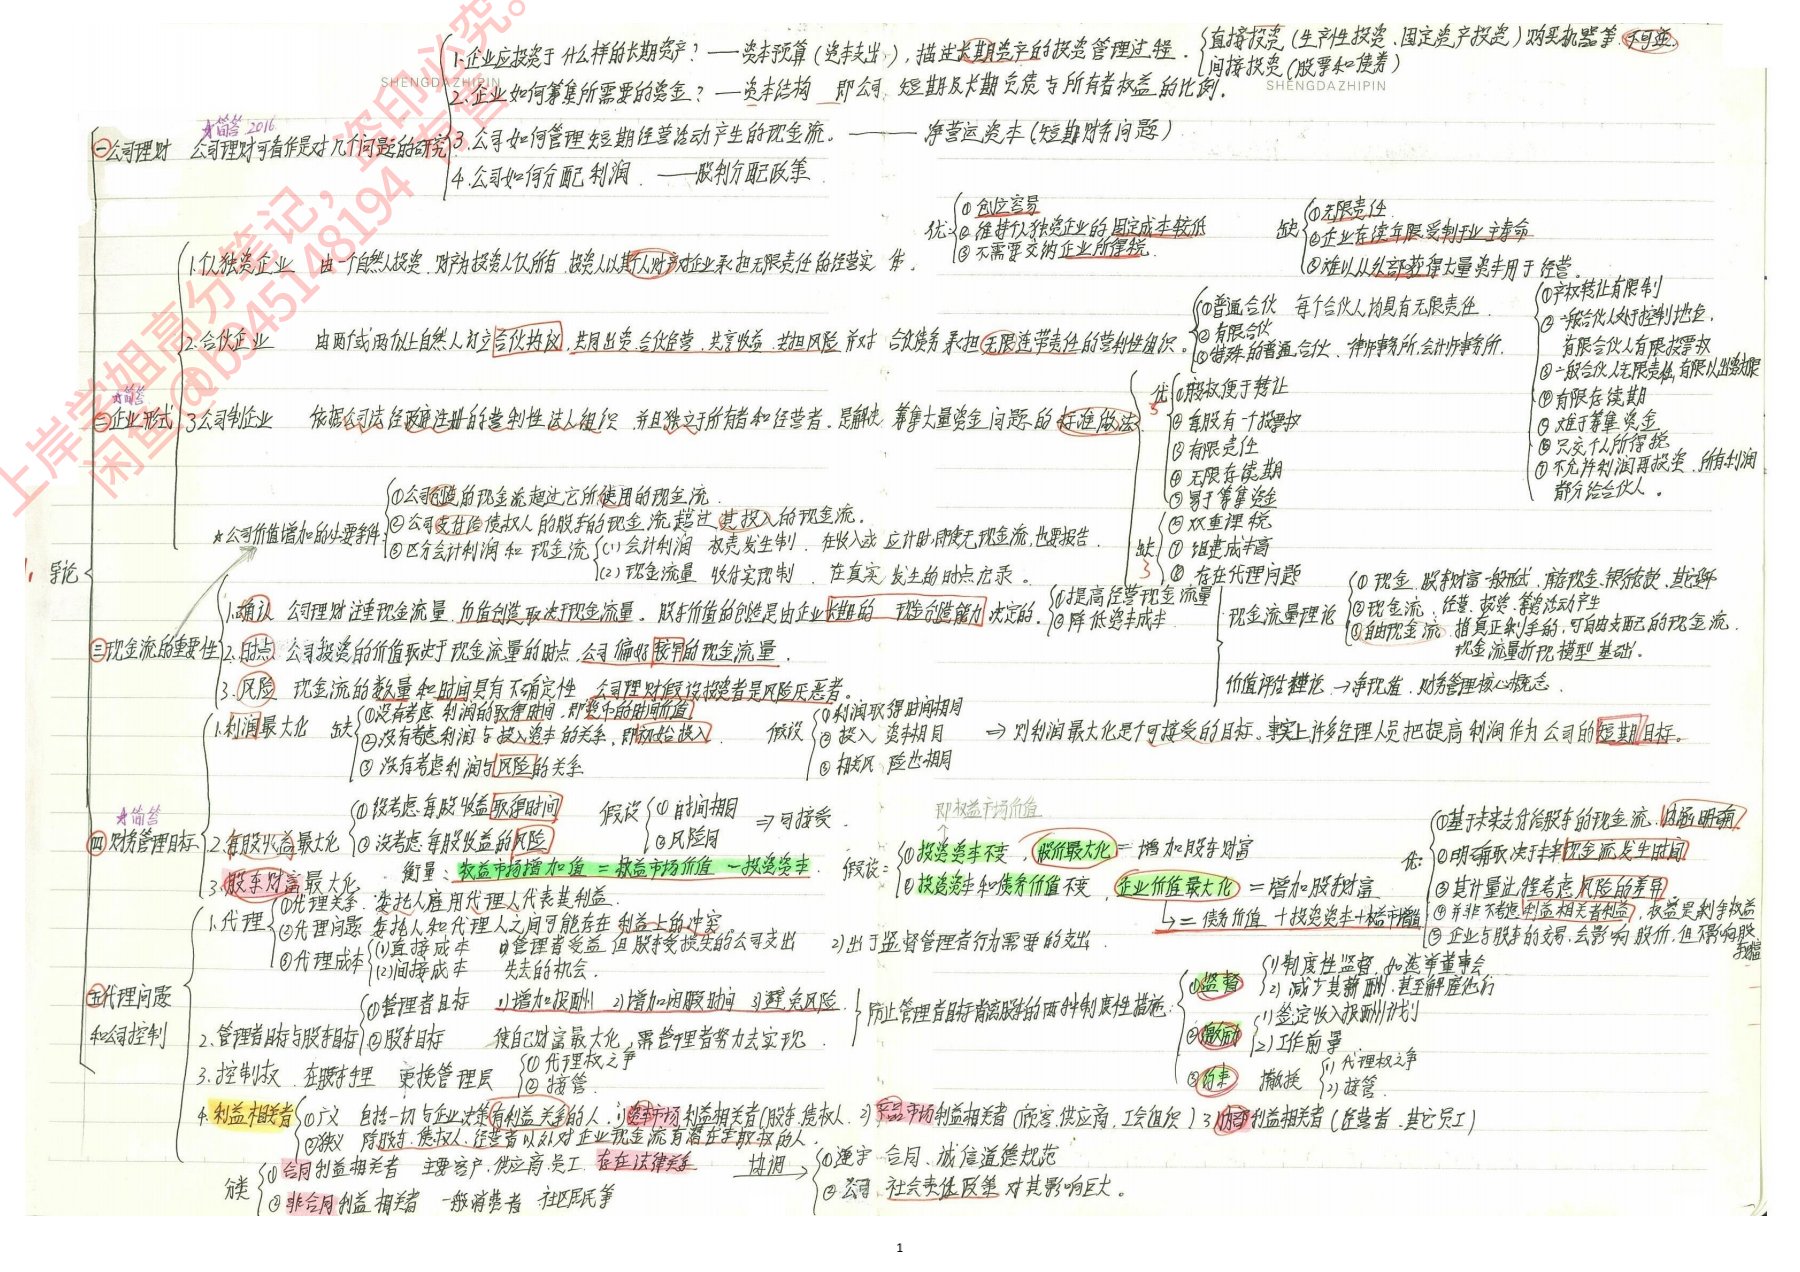 1. 导论
一 公司理财 公司理财可看作是对几个问题的研究
☆简答 2016
1.企业应投资于什么样的长期资产？——资本预算（资本支出），描述长期资产的投资管理过程.
直接投资（生产性投资、固定资产投资）购买机器等
间接投资（股票和债券）
2.企业如何筹集所需要的资金？——资本结构 即公司 短期及长期负债与所有者权益的比例.
SHENGDAZHIPIN
SHENGDAZHIPIN
3.公司如何管理短期经营活动产生的现金流.——净营运资本（短期财务问题）
4.公司如何分配利润.——股利分配政策
☆简答
二 企业形式
1.个人独资企业 由一个自然人投资.财产为投资人个人所有.投资人以其个人财产对企业承担无限责任的经营实体.
优
①创立容易
②维持个人独资企业的固定成本较低
③不需要交纳企业所得税.
缺
①无限责任
②企业存续年限受制于业主寿命
③难以从外部获得大量资本用于经营.
2.合伙企业 由两个或两个以上自然人订立合伙协议,共同出资.合伙经营.共享收益.共担风险并对合伙债务承担无限连带责任的营利性组织.
①普通合伙 每个合伙人均具有无限责任.
②有限合伙
③特殊的普通合伙.律师事务所.会计师事务所.
①产权转让有限制
②一般合伙人处于控制地位,
有限合伙人有限投票权
③一般合伙人无限责任,有限以出资额限
④有限存续期
⑤难于筹集资金
⑥只交个人所得税
⑦不允许利润再投资.所有利润
都分给合伙人。
3.公司制企业 依据公司法经政府注册的营利性法人组织.并且独立于所有者和经营者.是解决筹集大量资金问题的标准做法
优 5
①股权便于转让
②每股有一个投票权
③有限责任
④无限存续期
⑤易于筹集资金
缺 3
⑥双重课税
⑦组建成本高
⑧存在代理问题
☆公司价值增加的必要条件
①公司创造的现金流超过它所使用的现金流.
②公司支付给债权人的股东的现金流超过其投入的现金流。
③区分会计利润和现金流
(1)会计利润 权责发生制.在收入或应计时,即使无现金流,也要报告.
(2)现金流量 收付实现制.在真实发生的时点记录。
三 现金流的重要性
1.确认 公司理财注重现金流量.价值创造取决于现金流量.股东价值的创造是由企业长期的现金创造能力决定的.
①提高经营现金流量
②降低资本成本
现金流量理论
①现金.股东财富一般形式.库存现金.银行存款.其它货币
②现金流:经营.投资.筹资活动产生
③自由现金流.指真正剩余的,可自由支配的现金流.
现金流量折现模型基础。
价值评估理论→净现值.财务管理核心概念.
2.时点 公司投资的价值取决于现金流量的时点,公司偏好较早的现金流量.
3.风险 现金流的数量和时间具有不确定性.公司理财假设投资者是风险厌恶者。
☆简答
四 财务管理目标
1.利润最大化 缺
①没有考虑利润的取得时间,即货币的时间价值
②没有考虑利润与投入资本的关系,即初始投入.
③没有考虑利润与风险的关系
假设
①利润取得时间相同
②投入资本相同
③相关风险也相同
⇒则利润最大化是个可接受的目标.事实上许多经理人员把提高利润作为公司的短期目标。
2.每股收益最大化
①没考虑每股收益取得时间
②没考虑每股收益的风险
假设
①时间相同
②风险同
⇒可接受.
3.股东财富最大化.衡量:权益市场增加值=权益市场价值-投资资本.
即权益市场价值
假设=
①投资资本不变,股价最大化=增加股东财富
②投资资本和债务价值不变,企业价值最大化=增加股东财富
=债务价值+投资资本+权益市增值
优:
①基于未来支付给股东的现金流.内涵明确
②明确取决于未来现金流发生时间
③其计量过程考虑风险的差异
④并非不考虑利益相关者利益,权益是剩余权益
⑤企业与股东的交易,会影响股价,但不影响股东财富
五 代理问题
和公司控制
1.代理
①代理关系.委托人雇用代理人代表其利益.
②代理问题.委托人和代理人之间可能存在利益上的冲突
③代理成本
(1)直接成本 1)管理者受益但股东受损失的公司支出 2)出于监督管理者行为需要的支出.
(2)间接成本 失去的机会.
2.管理者目标与股东目标
①管理者目标 1)增加报酬 2)增加闲暇时间 3)避免风险.
②股东目标 使自己财富最大化,需管理者努力去实现.
防止管理者目标背离股东的两种制度性措施:
①监督
(1)制度性监督.如选举董事会
(2)减少其薪酬.甚至解雇他们
②激励
(1)签定收入报酬计划
(2)工作前景
③约束 撤换
(1)代理权之争
(2)接管.
3.控制权 在股东手里 更换管理层
①代理权之争
②接管.
4.利益相关者
①广义 包括一切与企业决策有利益关系的人.1)资本市场利益相关者(股东.债权人.2)产品市场利益相关者(顾客.供应商.工会组织)3)内部利益相关者(经营者.其它员工)
②狭义 除股东.债权人.经营者以外对企业现金流有潜在索取权的人.
分类
①合同利益相关者 主要客户.供应商.员工.存在法律关系
②非合同利益相关者 一般消费者 社区居民等
协调→
①遵守合同.诚信道德规范
②公司社会责任政策对其影响巨大。
上岸学姐高分笔记，盗印必究。
闲鱼@b945148194有售
1